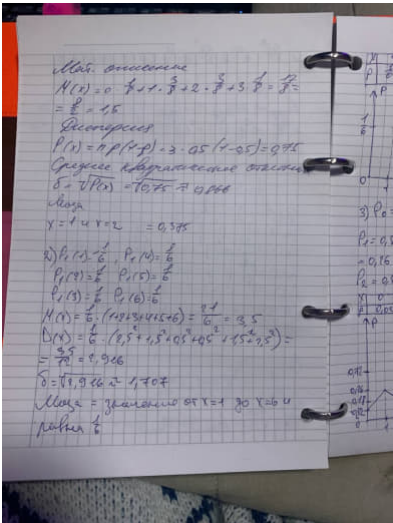 Мат. ожидание
M(x) = 0 · 1/8 + 1 · 3/8 + 2 · 3/8 + 3 · 1/8 = 12/8 =
= 1,5
Дисперсия
D(x) = np(1-p) = 3 · 0,5 (1-0,5) = 0,75
Среднее квадратическое
σ = √D(x) = √0,75 ≈ 0,866
Мода
x = 1 и x = 2 = 0,375
2) P₁(1) = 1/6, P₁(4) = 1/6
P₁(2) = 1/6 P₁(5) = 1/6
P₁(3) = 1/6 P₁(6) = 1/6
M(x) = 1/6 · (1+2+3+4+5+6) = 21/6 = 3,5
D(x) = 1/6 · (2,5² + 1,5² + 0,5² + 0,5² + 1,5² + 2,5²) =
= 35/12 = 2,916
σ = √2,916 ≈ 1,707
Мода = значение от x=1 до x=6 и
равна 1/6
3) P₀ =